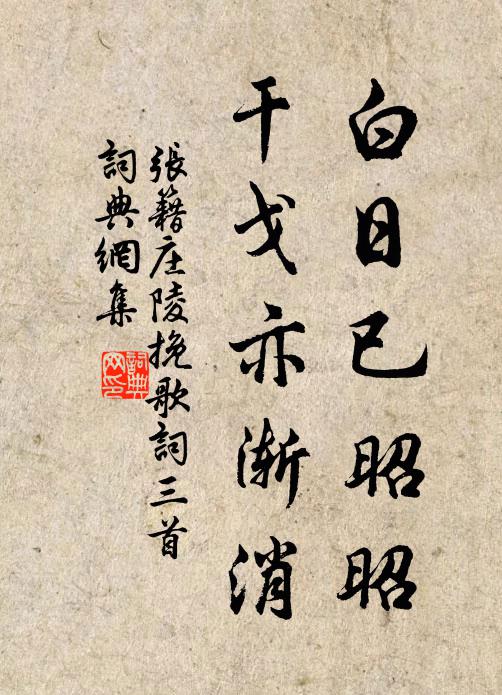 白日已昭昭
干戈亦漸消
張籍庄陵挽歌詞三首
詞典網集
詞典
网印